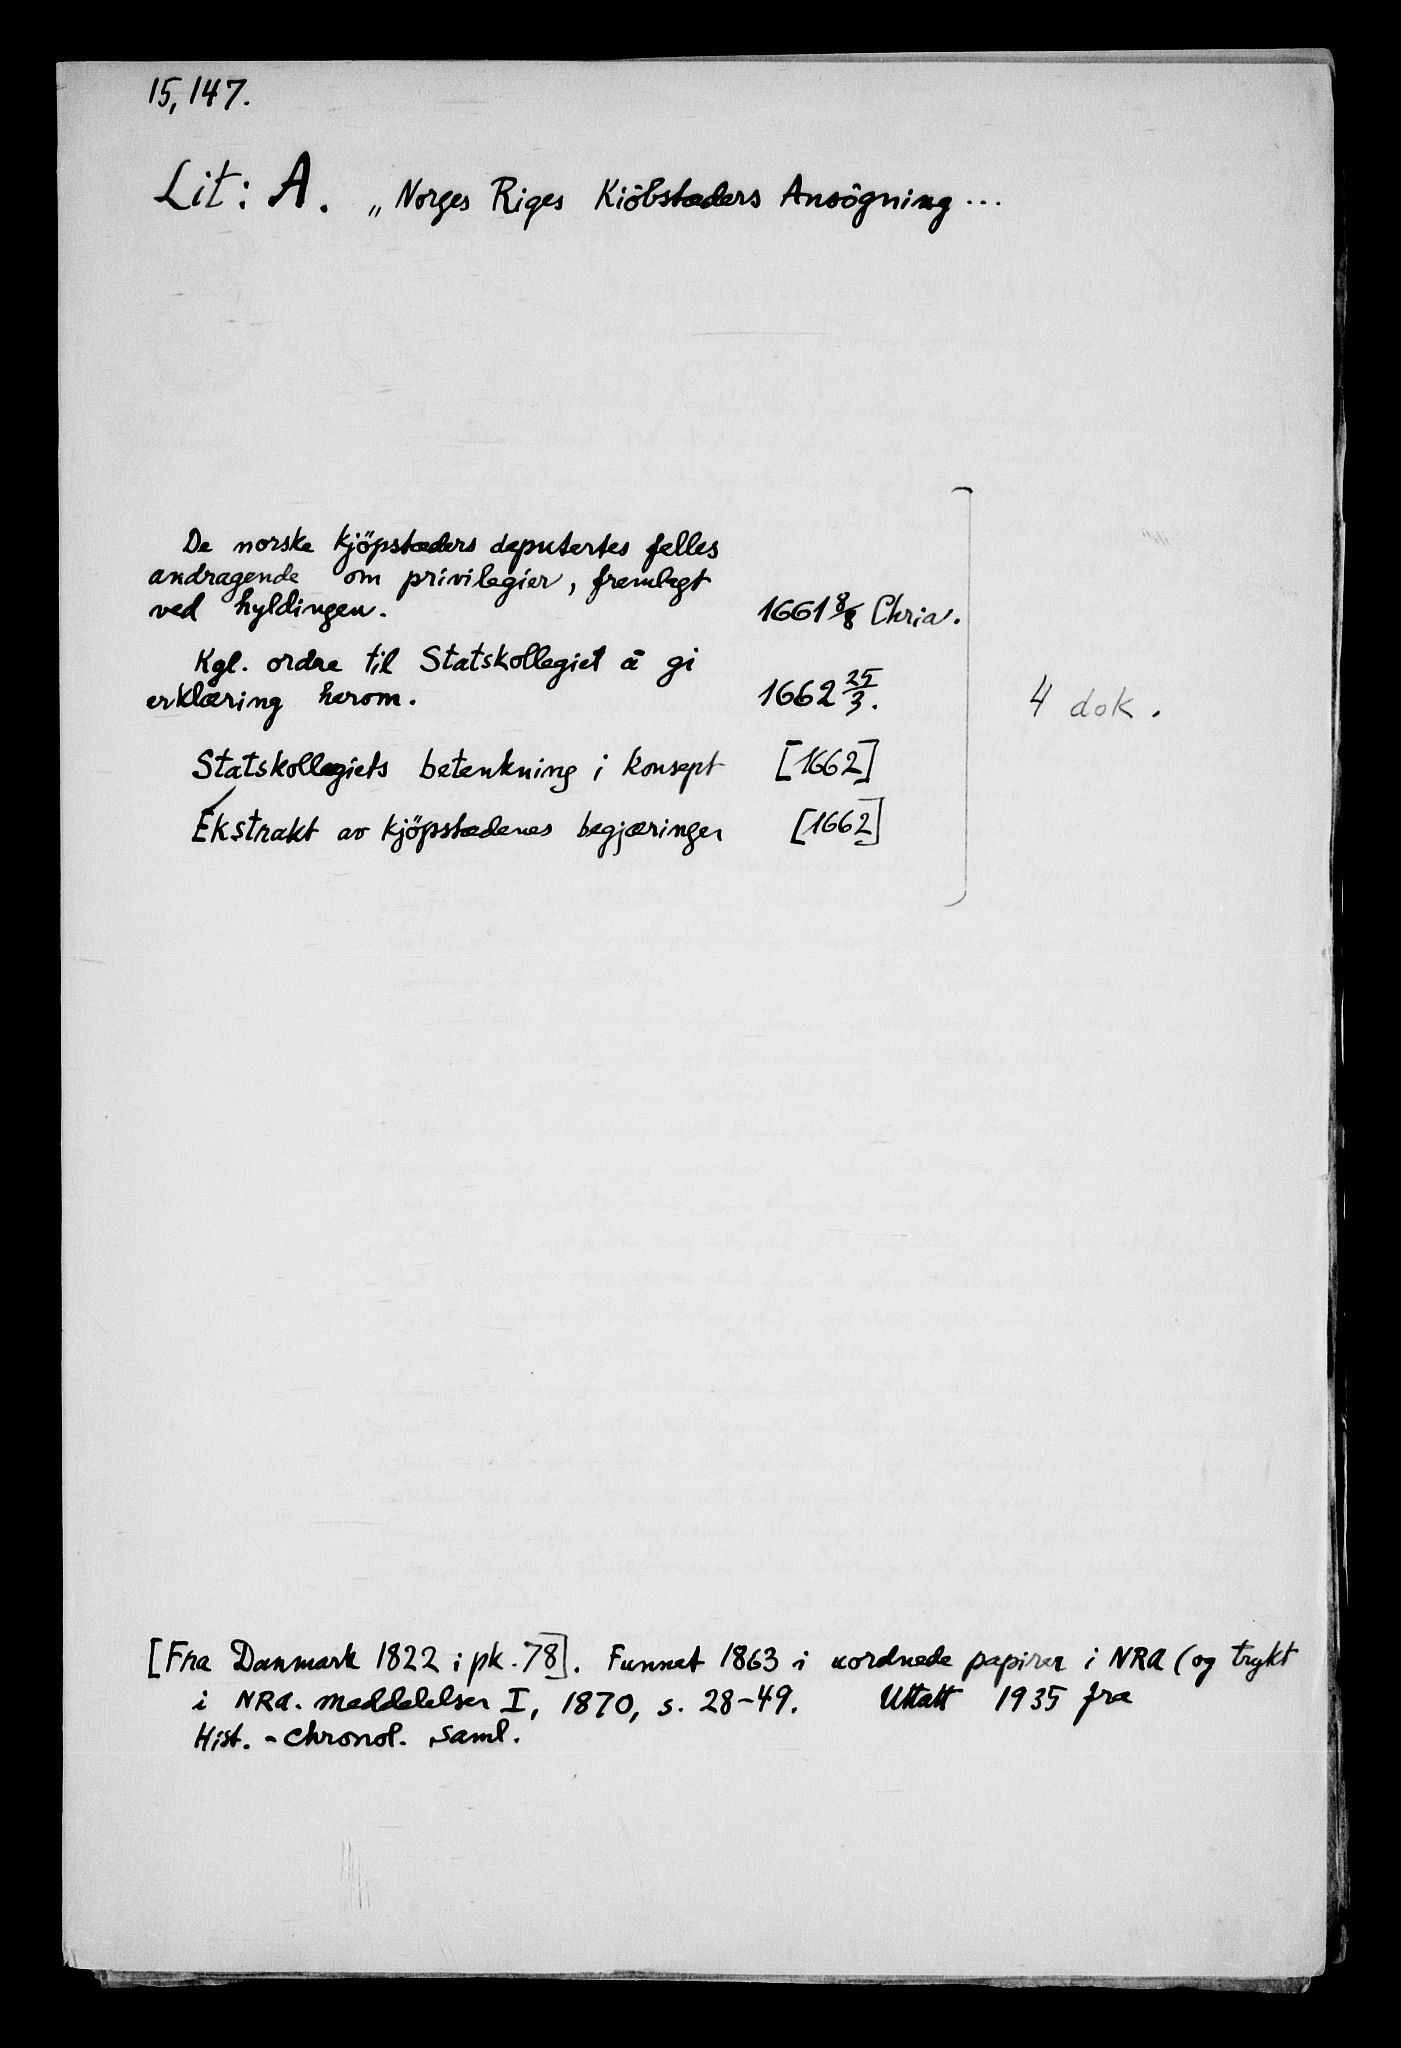 15,147.
Lit: A. „Norges Riges Kiöbstæders Ansögning...
De norske kjöpstæders deputertes felles
andragende om privilegier, fremlagt
ved hyldingen. 1661 8/8 Chria.
Kgl. ordre til Statskollegiet å gi
erklæring herom. 1662 25/3.
4 dok.
Statskollegiets betenkning i konsept [1662]
Ekstrakt av kjöpstædenes begjæringer [1662]
[Fra Danmark 1822 i pk. 78]. Funnet 1863 i uordnede papirer i NRA (og trykt
i NRA. Meddelelser I, 1870, s. 28-49. Uttatt 1935 fra
Hist. - Chronol. Saml.